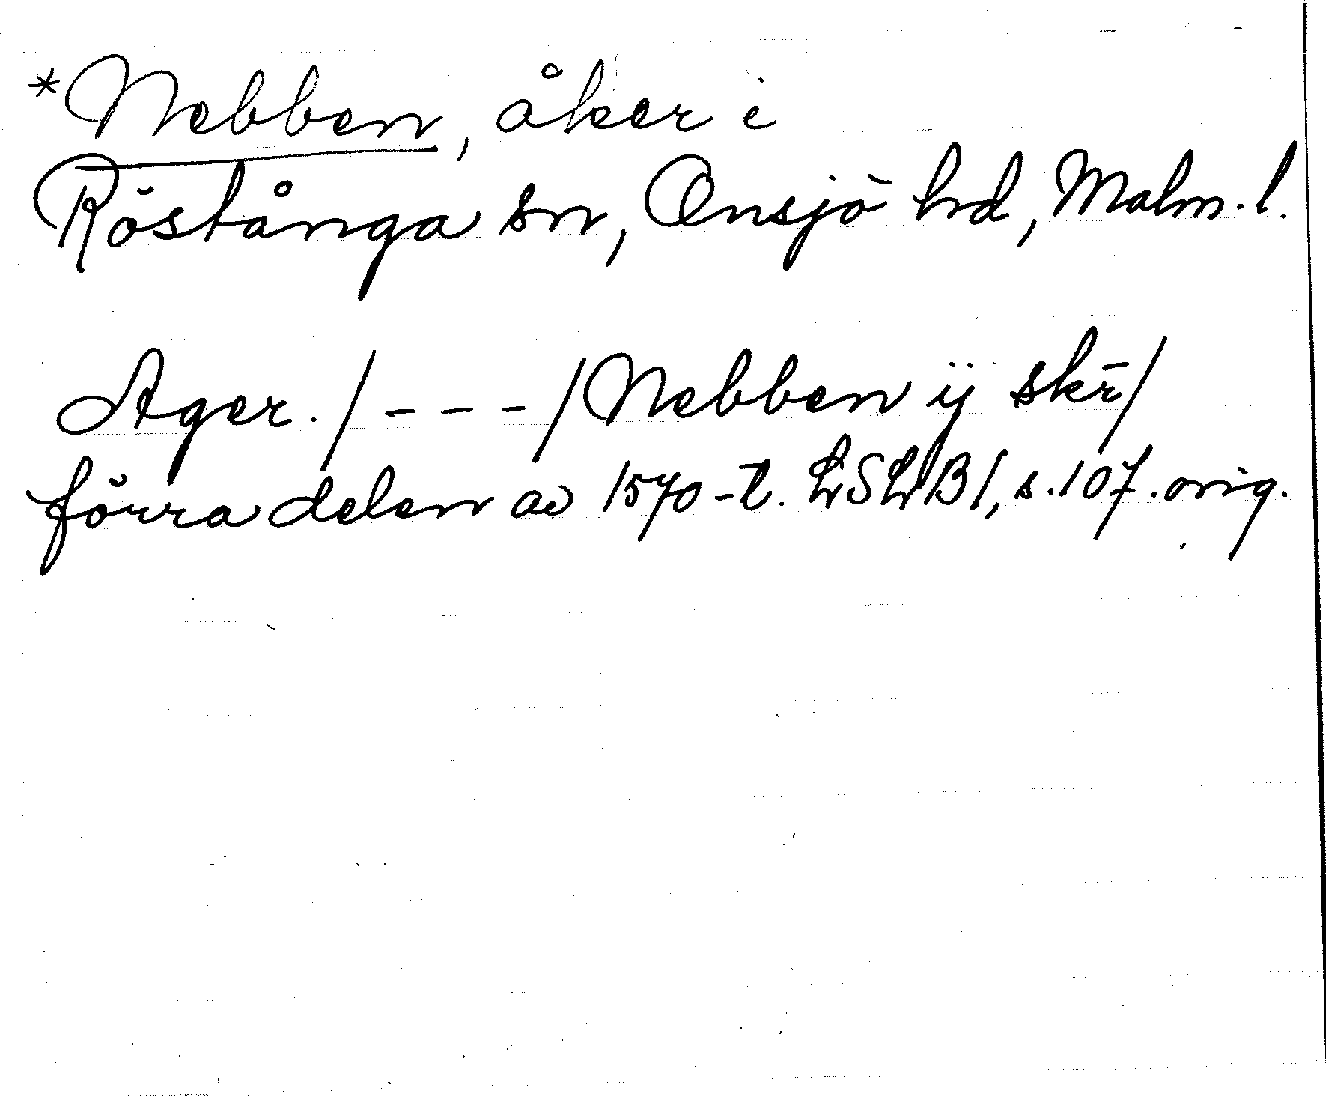 *Nebben, åker i
Röstånga sn, Onsjö hd, Malm. l.
Ager. /- - -/ Nebben ij skr̄/
förra delen av 1570-t. LSLB 1, s. 107. orig.